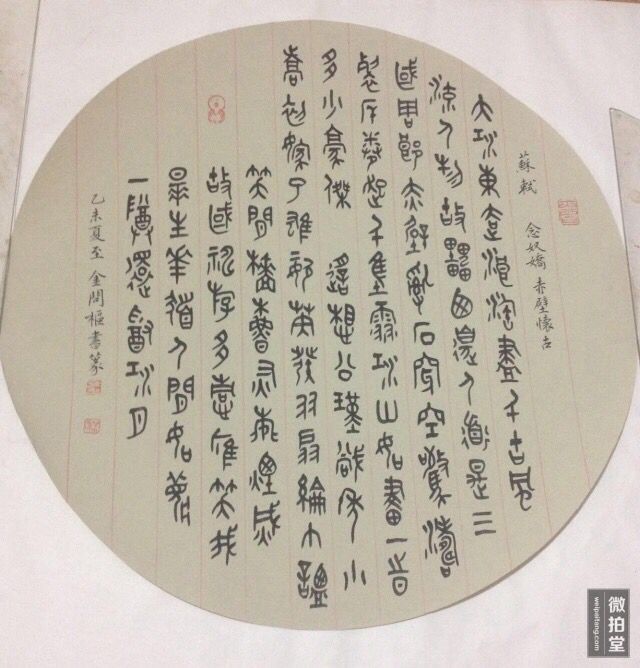 蘇軾 念奴嬌 赤壁懷古
大江東去浪淘盡千古風
流人物故壘西邊人道是三
國周郎赤壁亂石穿空驚濤
裂岸卷起千堆雪江山如畫一時
多少豪傑 遙想公瑾當年小
喬初嫁了雄姿英發羽扇綸巾談
笑間檣櫓灰飛煙滅
故國神游多情應笑我
早生華髮人間如夢
一樽還酹江月
乙未夏至 金開樞書篆
微拍堂
weipaitang.com